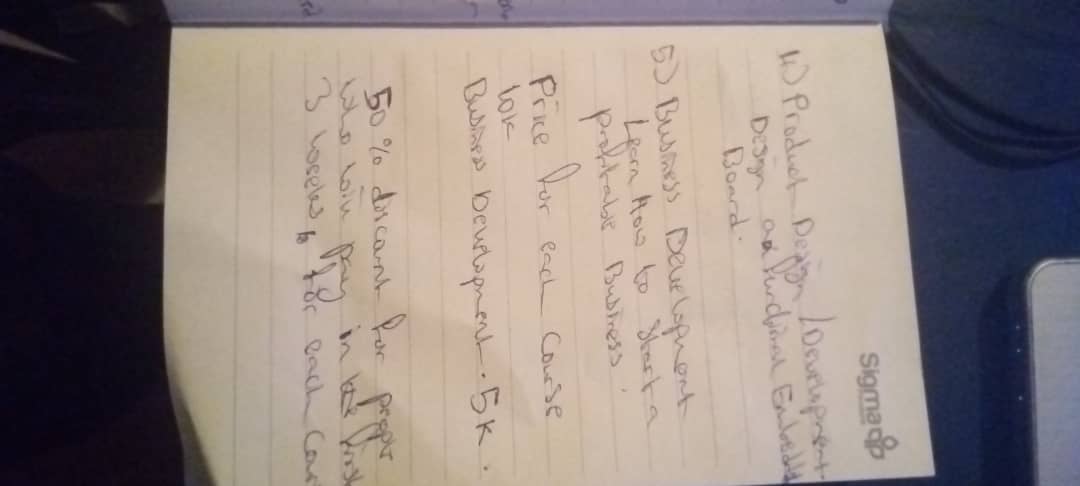 sigma
4) Product Design/Development
Design a functional Embedd
Board.
5) Business Development
Learn How to start a
profitable Business,
Price for each course
10K
Business Development. 5K.
50% discount for
who will pay in the first
3 weeks for each Cour